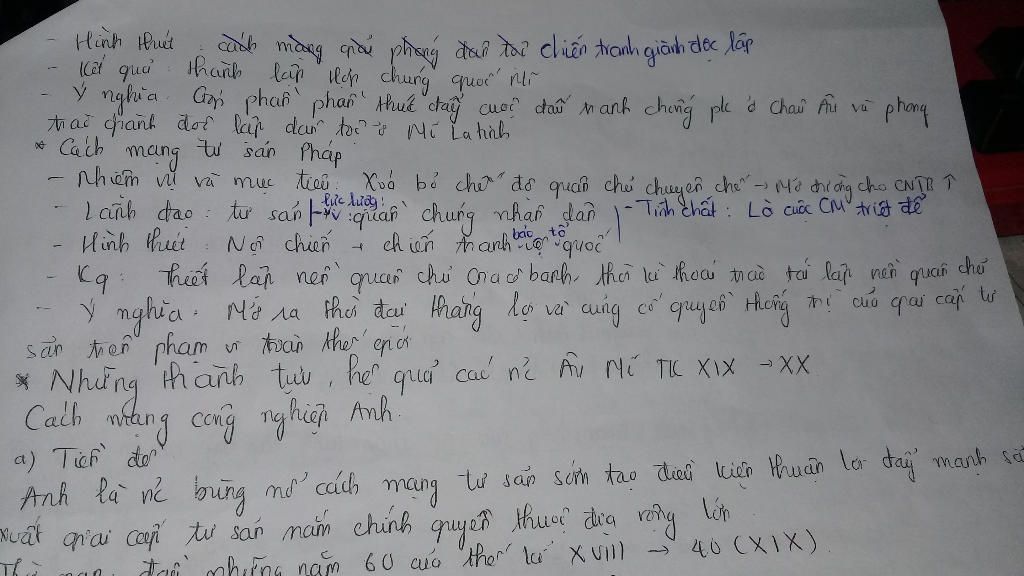 - Hình thức : cách mạng giải phóng dân tộc chiến tranh giành độc lập
- Kết quả : thành lập Hợp chúng quốc Mĩ
- Ý nghĩa : Góp phần phần thúc đẩy cuộc đấu tranh chống pk ở Châu Âu và phong
trào giành độc lập dân tộc ở Mĩ La tinh
* Cách mạng tư sản Pháp
- Nhiệm vụ và mục tiêu : Xoá bỏ chế độ quân chủ chuyên chế → Mở đường cho CNTB ↑
- Lãnh đạo : tư sản lực lượng: quần chúng nhân dân - Tính chất : Là cuộc CM triệt để
- Hình thức : Nội chiến + chiến tranh bảo tổ quốc
- Kq : Thiết lập nền quân chủ Giacôbanh, thời kì thoái trào tái lập nền quân chủ
- Ý nghĩa : Mở ra thời đại thắng lợi và củng cố quyền thống trị của giai cấp tư
sản trên phạm vi toàn thế giới
* Những thành tựu, hệ quả các nc Âu Mĩ TK XIX → XX
Cách mạng công nghiệp Anh.
a) Tiền đề
Anh là nc bùng nổ cách mạng tư sản sớm tạo điều kiện thuận lợi đẩy mạnh sản
xuất giai cấp tư sản nắm chính quyền thuộc địa rộng lớn
Thời gian : đầu những năm 60 của thế kỉ XVIII → 40 (XIX).